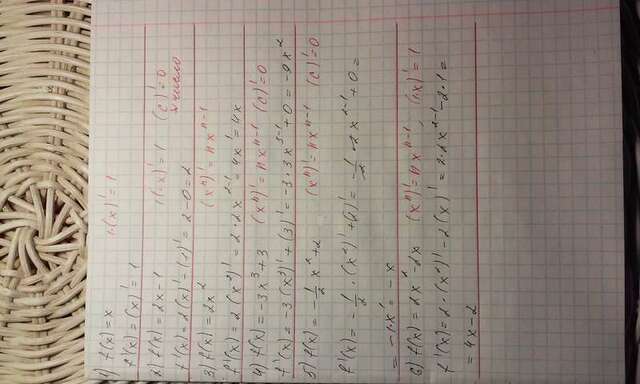 1) f(x) = x
(x)' = 1
f'(x) = (x)' = 1
2) f(x) = 2x - 1
(x)' = 1 (c)' = 0
число
f'(x) = 2(x)' - (1)' = 2 - 0 = 2
3) f(x) = 2x²
(xⁿ)' = nxⁿ⁻¹
f'(x) = 2(x²)' = 2 · 2x²⁻¹ = 4x¹ = 4x
4) f(x) = -3x³ + 3 (xⁿ)' = nxⁿ⁻¹ (c)' = 0
f'(x) = -3(x³)' + (3)' = -3 · 3x³⁻¹ + 0 = -9x²
5) f(x) = -1/2 x² + 2 (xⁿ)' = nxⁿ⁻¹ (c)' = 0
f'(x) = -1/2 · (x²)' + (2)' = -1/2 · 2x²⁻¹ + 0 =
= -1x¹ = -x
6) f(x) = 2x² - 2x (xⁿ)' = nxⁿ⁻¹ (x)' = 1
f'(x) = 2 · (x²)' - 2(x)' = 2 · 2x²⁻¹ - 2 · 1 =
= 4x - 2